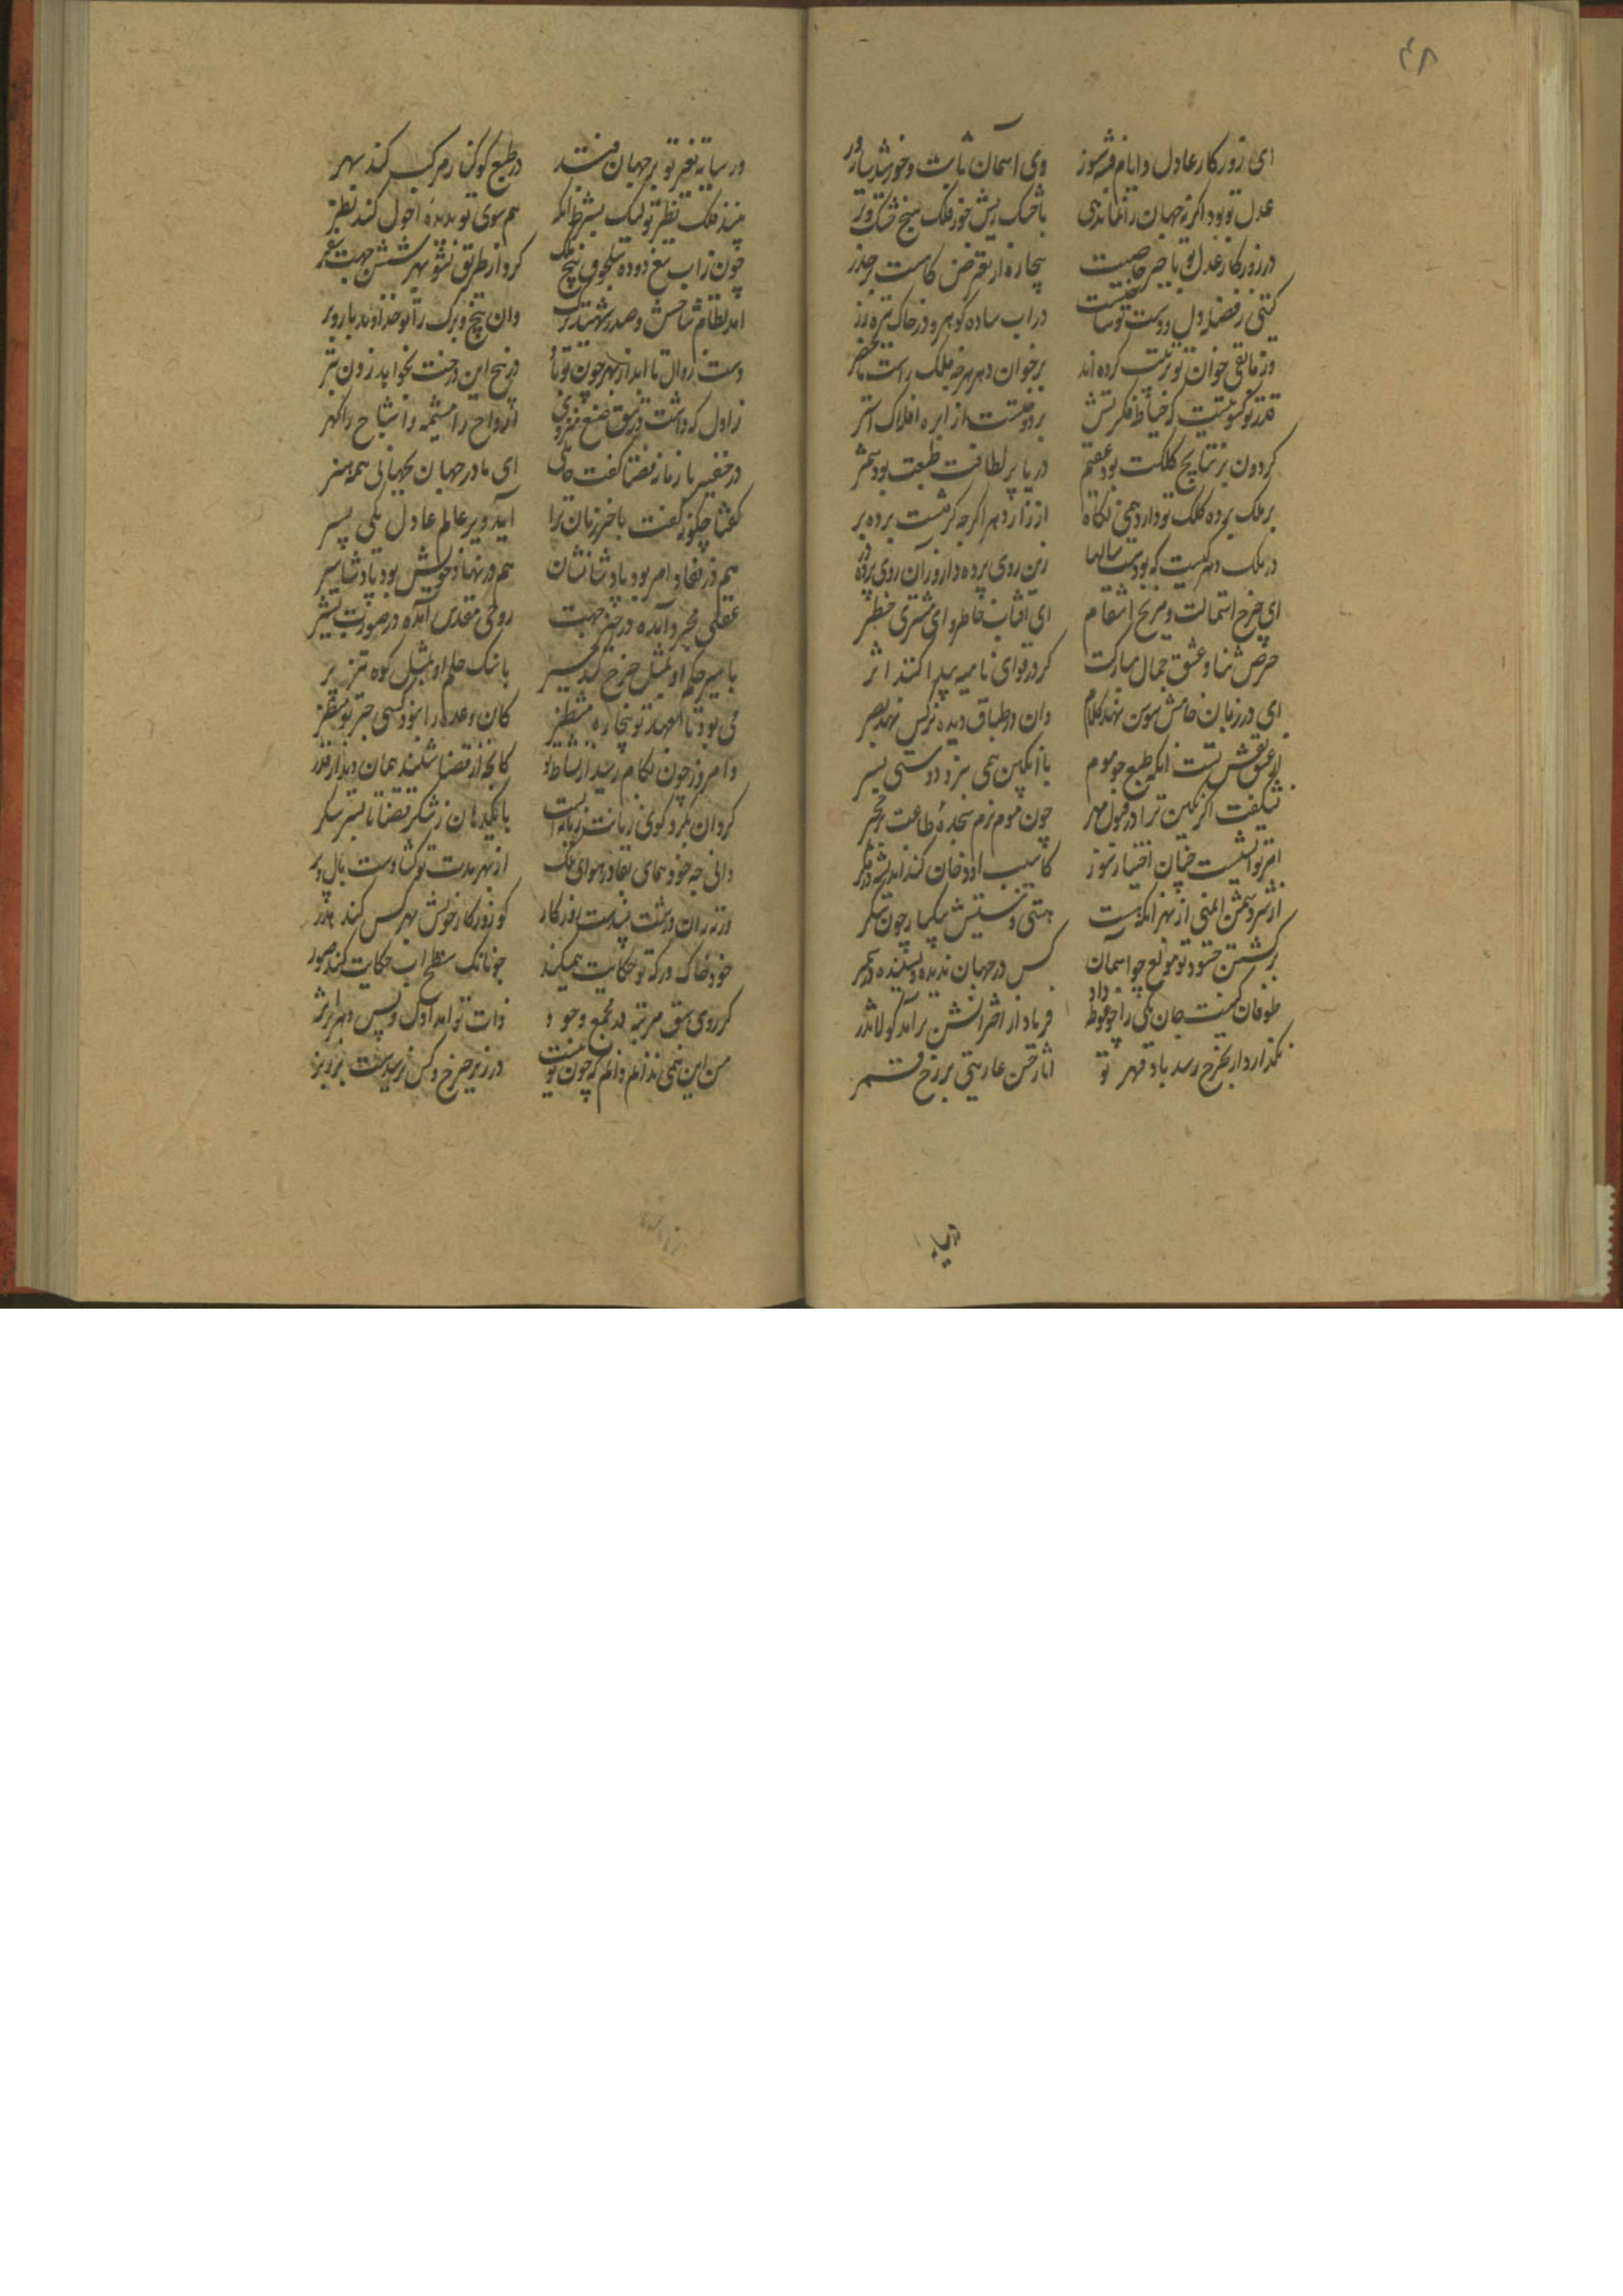 ۴۸
ای روزکار عادل و ایام فتنه سوز وی آسمان ثابت و خورشید سایه ور
عدل تو بود اکر نه جهان را نماندی با خشک ریش جور فلک هیچ خشک و تر
در روزکار عدل تو با جبر خاصیت بیجاده از تعرض کاهست بر حذر
کیتی ز فضله دل و دست تو ساختست در اب ساده کوهر و در خاک تیره زر
وز مابقی خوان تو ترتیب کرده اند بر خوان دهر هرچه فلک راست ماحضر
قدر تو کسوتیست که خیاط فکرتش بردوختست از ابره افلاک استر
کردون بر نتایج کلکت بود عقیم دریا بر لطافت طبعت بود شمر
بر ملک پرده کلک تو دارد همی نکاه از راز دهر اکرچه کرفتست پرده بر
در ملک دهر کیست که بودست سالها زین روی پرده دار و زآن روی پرده در
ای چرخ استمالت و مریخ انتقام ای آفتاب خاطر و ای مشتری خطر
حرص ثنا و عشق جمال مبارکت کردر قوای نامیه پیدا کنند اثر
ای در زبان خامش سوسن نهد کلام وان در طباق دیده نرکس نهد بصر
از عشق نقش تست انکه طبع موم با انکبین همی نبرد دوستی بسر
نشکفت اکر نکین ترا در قبول مهر چون موم نرم سجده طاعت برد حجر
کاسیب او دخان کند اندیشه در فکر
هستی و نیستیش یکسان چون سکر
برکشتن حسود تو مولع چو آسمان کس در جهان ندیده و نشنیده در سمر
طوفان کینت جان یکی را چو غوطه داد فریاد از اخترانش برآمد که لاتذر
نکذارد ار بچرخ رسد باد قهر تو آثار حسن عاریتی بر رخ قمر
ور سایه
ور سایه تغیر تو بر جهان فتد در طبع کوکنار مرکب کند سهر
بیند فلک نظیر تو لیکن بشرط آنکه هم سوی تو بدیده احول کند نظر
چون زاب تیغ دوده سلجوق بیخ ملک کرد از طریق نشو بهر شش جهت شجر
آمد نظام شاخش و صدر شهید برک وان بیخ و برک را تو خداوند بار و بر
دست زوال تا ابد از بهر چون تو بار در بیخ این درخت نخواهد زدن تبر
ز اول که داشت در تتق صنع منزوی ارواح را مشیمه و اشباح را کهر
در خفیه با زمانه قضا کفت حالتی ای مادر جهان بجهانی همه هنر
کفتا چکونه کفت باخر زمان ترا آید وزیر عالم عادل یکی پسر
هم در نفاذ امر بود پادشا نشان هم در نهاد خویش بود پادشا سیر
عقلی مجرد آمده در حیز جهت روحی مقدس آمده در صورت بشر
با سیر حکم او بمثل چرخ کند سیر با سنک حلم او بمثل کوه تیز پر
می بود تا بعهد تو بیچاره منتظر کان وعده را نبود کسی جز تو منتظر
وامروز چون بکام رسید از نشاط تو کانجه از قضا شنید همان دید از قدر
کردان بکرد کوی زمانست زبان شکر با یکدهان ز شکر قضا تا بسر شکر
دانی چه خود همای بقا در هوای ملک از بهر مدت تو کشادست بال و پر
کو روزکار خویش بهر کس کند هدر
خود خاک درکه تو حکایت همیکند چونانک سطح اب حکایت کند صور
کز روی سبق مرتبه در مجمع وجود ذات تو آمد اول و پس دهر بر اثر
من این همی ندانم و دانم که چون تو نیست در زیر چرخ و کس نرسیدست بر زبر